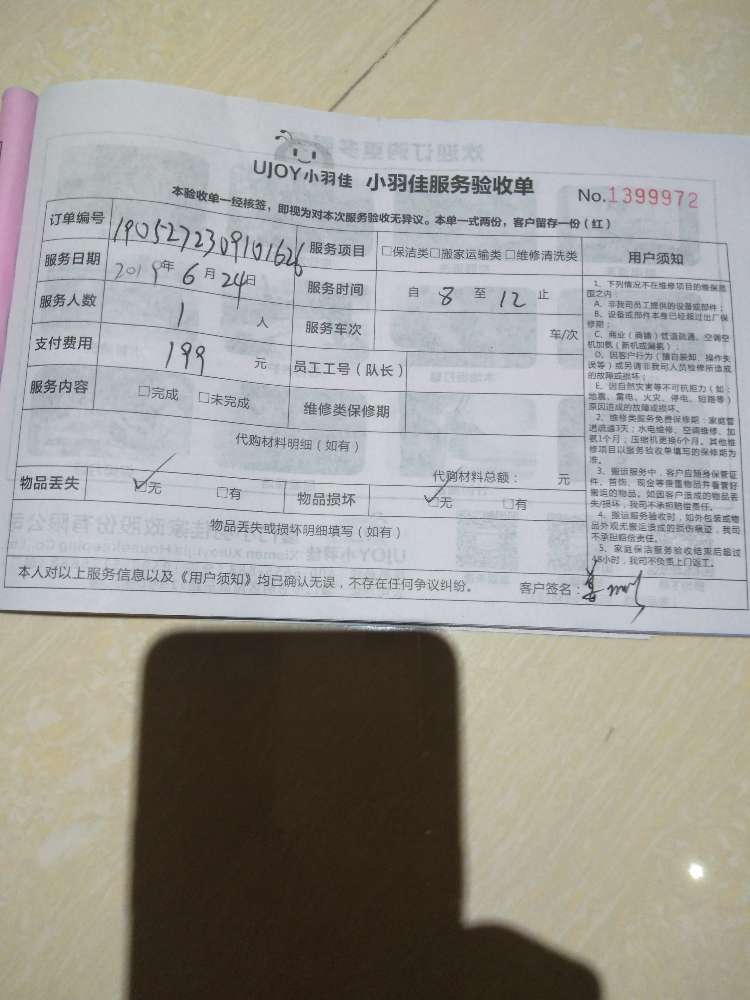 UJOY小羽佳 小羽佳服务验收单 No.1399972
本验收单一经核签，即视为对本次服务验收无异议。本单一式两份，客户留存一份（红）
订单编号 1905272309101626 服务项目 □保洁类□搬家运输类 □维修清洗类 用户须知
服务日期 2019年 6月 24日 服务时间 自 8 至 12 止
服务人数 1 人 服务车次 车/次
支付费用 199 元 员工工号（队长）
服务内容 □完成 □未完成 维修类保修期
代购材料明细（如有）
代购材料总额： 元
物品丢失 ☑无 □有 物品损坏 ☑无 □有
物品丢失或损坏明细填写（如有）
1、下列情况不在维修项目的维保范
围之内：
A、非我司员工提供的设备或部件；
B、设备或部件本身已经超过出厂保
修期；
C、商业（商铺）管道疏通、空调空
机加氨（新机或漏氨）；
D、因客户行为（擅自装卸、操作失
误等）或另请非我司人员检修所造成
的故障或损坏；
E、因自然灾害等不可抗力（如：
地震、雷电、火灾、停电、短路等）
原因造成的故障或损坏。
2、维修类服务免费保修期：家庭管
道疏通3天；水电维修、空调维修、加
氨1个月；压缩机更换6个月。其他维
修项目以服务验收单填写的保修期为
准。
3、搬运服务中，客户应随身保管证
件、首饰、现金等贵重物品并看管好
搬运的物品。如因客户造成的物品丢
失/损坏，我司不承担赔偿责任。
4、搬运服务验收时，如外包装或物
品外观无搬运造成的损伤痕迹，我司
不承担赔偿责任。
5、家庭保洁服务验收结束后超过
48小时，我司不负责上门返工。
本人对以上服务信息以及《用户须知》均已确认无误，不存在任何争议纠纷。 客户签名：